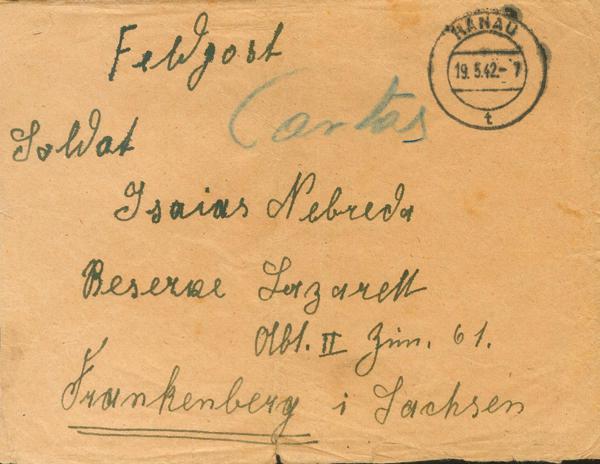 Feldpost
HANAU
19.5.42.-7
t
Cartas
Soldat
Isaias Nebreda
Reserve Lazarett
Abt. II Zim. 61.
Frankenberg i Sachsen